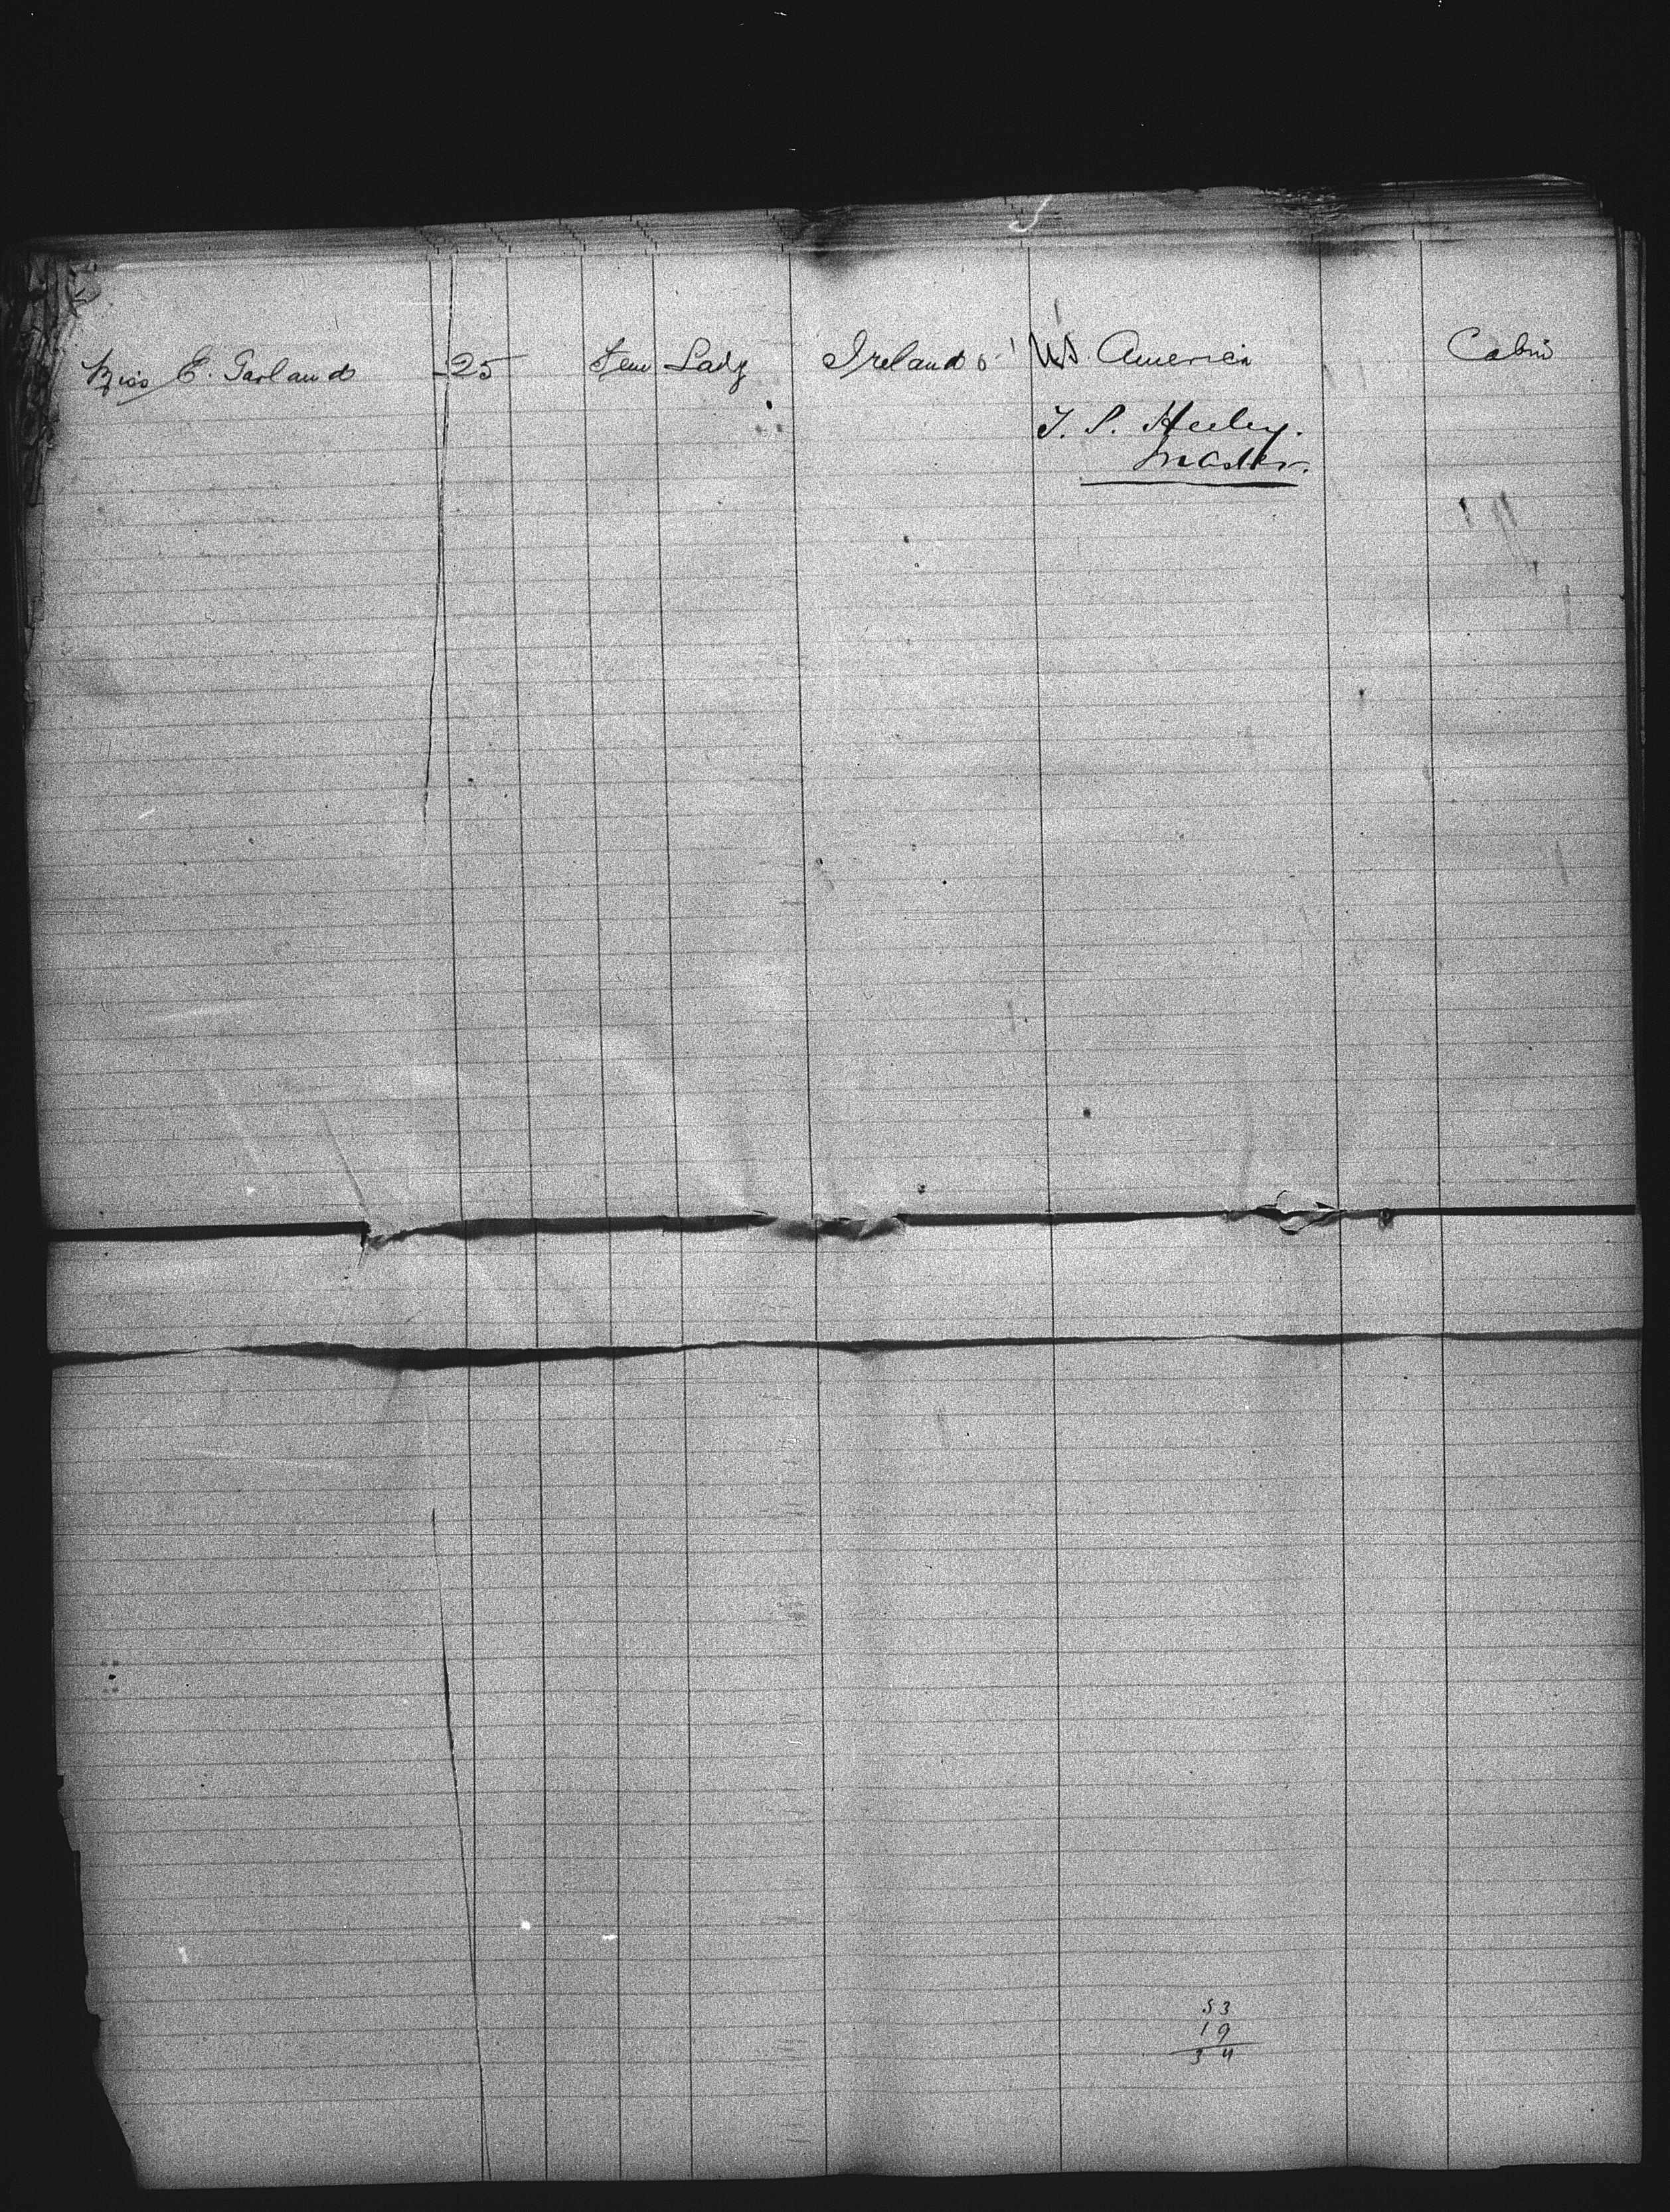 Miss E. Garland 25 Fem Lady Ireland US. America Cabin
T. S. Heeley.
Master.
53
19
34